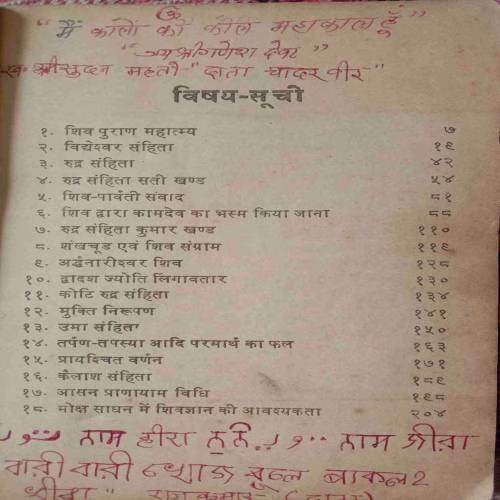 ॐ
"मैं कालों का काल महाकाल हूँ"
"जय श्री गणेश देवा"
विषय-सूची
१. शिव पुराण महात्म्य ७
२. विद्येश्वर संहिता १९
३. रुद्र संहिता ४२
४. रुद्र संहिता सती खण्ड ५४
५. शिव-पार्वती संवाद ८१
६. शिव द्वारा कामदेव का भस्म किया जाना ८८
७. रुद्र संहिता कुमार खण्ड ११०
८. शंखचूड एवं शिव संग्राम ११९
९. अर्द्धनारीश्वर शिव १२८
१०. द्वादश ज्योति लिंगावतार १३०
११. कोटि रुद्र संहिता १३४
१२. मुक्ति निरूपण १४१
१३. उमा संहिता १५०
१४. तर्पण-तपस्या आदि परमार्थ का फल १६३
१५. प्रायश्चित वर्णन १७१
१६. कैलाश संहिता १८९
१७. आसन प्राणायाम विधि १९८
१८. मोक्ष साधन में शिवज्ञान की आवश्यकता २०४
नाम हीरा नाम जीरा
बारी बारी खोज